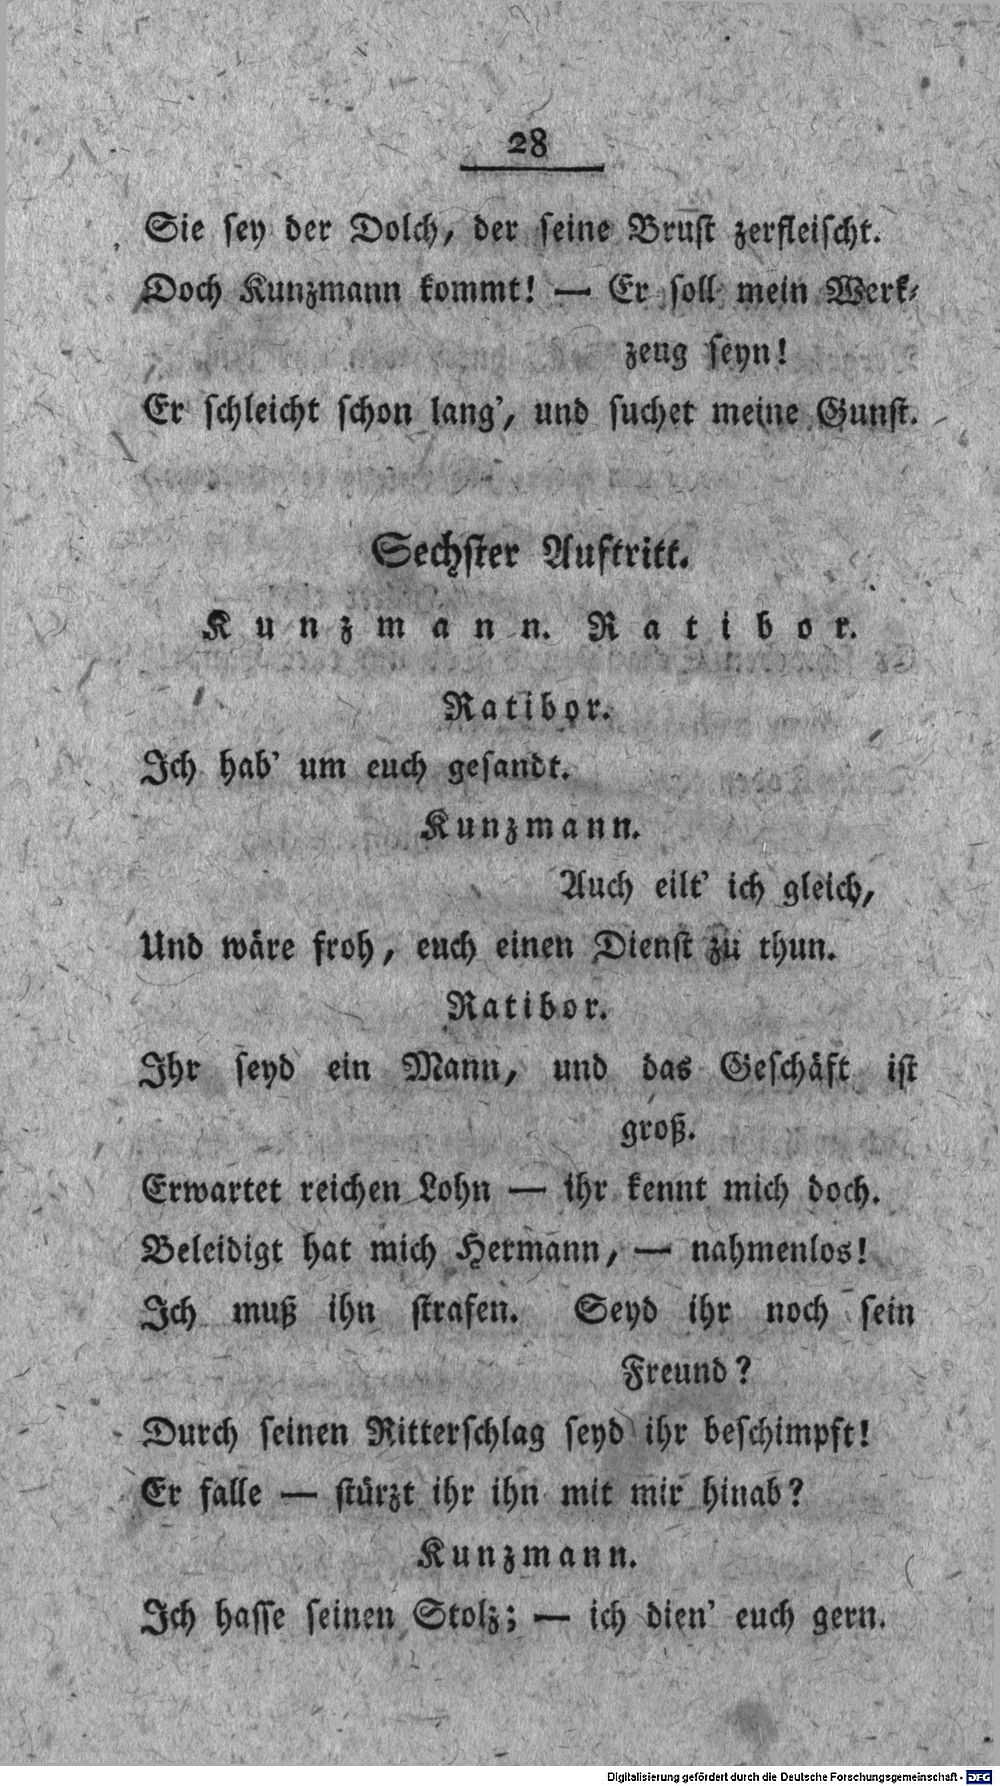 28
Sie sey der Dolch, der seine Brust zerfleischt.
Doch Kunzmann kommt! — Er soll mein Werk-
zeug seyn!
Er schleicht schon lang', und suchet meine Gunst.
Sechster Auftritt.
Kunzmann. Ratibor.
Ratibor.
Ich hab' um euch gesandt.
Kunzmann.
Auch eilt' ich gleich,
Und wäre froh, euch einen Dienst zu thun.
Ratibor.
Ihr seyd ein Mann, und das Geschäft ist
groß.
Erwartet reichen Lohn — ihr kennt mich doch.
Beleidigt hat mich Hermann, — nahmenlos!
Ich muß ihn strafen. Seyd ihr noch sein
Freund?
Durch seinen Ritterschlag seyd ihr beschimpft!
Er falle — stürzt ihr ihn mit mir hinab?
Kunzmann.
Ich hasse seinen Stolz; — ich dien' euch gern.
Digitalisierung gefördert durch die Deutsche Forschungsgemeinschaft - DFG